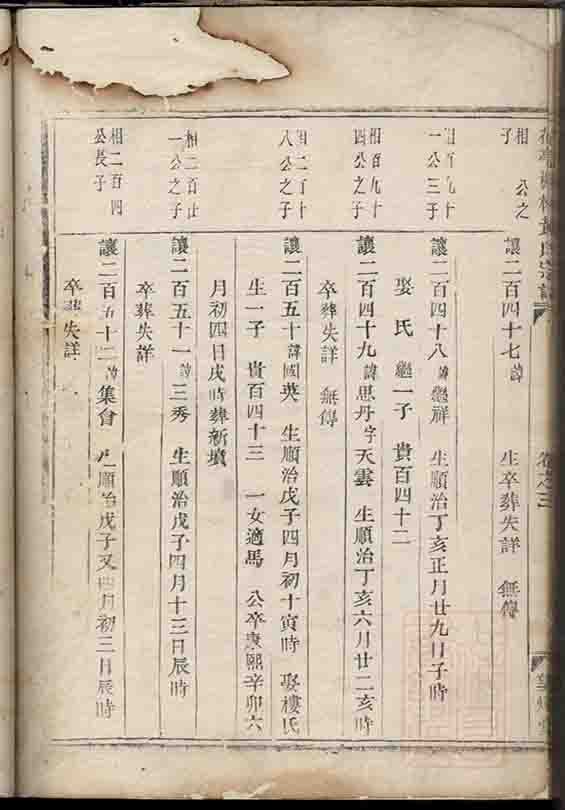 氏宗譜
卷之三
相 公之
子
讓二百四十七諱 生卒葬失詳 無傳
一公三子
讓二百四十八諱繼祥 生順治丁亥正月廿九日子時
娶 氏 繼一子 貴百四十二
相百九十
四公之子
讓二百四十九諱思丹字天雲 生順治丁亥六月廿二亥時
卒葬失詳 無傳
相二百十
八公之子
讓二百五十諱國英 生順治戊子四月初十寅時 娶樓氏
生一子 貴百四十三 一女適馬 公卒康熙辛卯六
月初四日戌時葬新墳
相二百廿
一公之子
讓二百五十一諱三秀 生順治戊子四月十三日辰時
卒葬失詳
相二百四
公長子
讓二百五十二諱集會 生順治戊子又四月初三日辰時
卒葬失詳